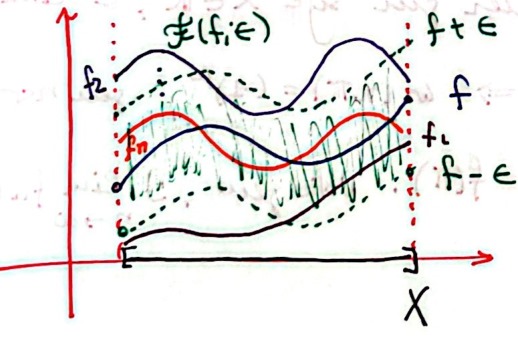 (f;ε)
f + ε
f2
f
fn
f1
f - ε
X